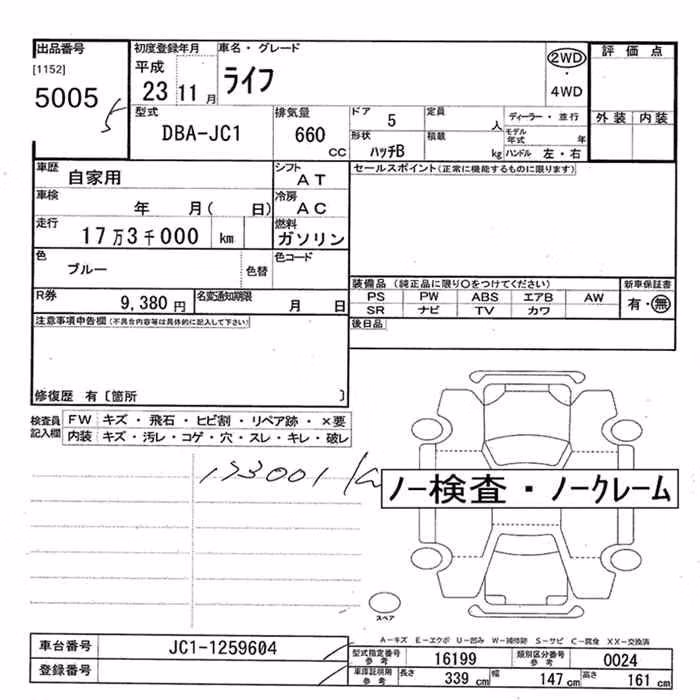 出品番号
[1152]
5005
初度登録年月
平成
23 11 月
車名・グレード
ライフ
2WD
・
4WD
評価点
外装 内装
型式
DBA-JC1
排気量
660
CC
ドア
5
定員
人
ディーラー・並行
形状
ハッチB
積載
kg
モデル
年式 年
ハンドル 左・右
車歴
自家用
シフト
AT
セールスポイント(正常に機能するものに限ります)
車検
年 月( 日)
冷房
AC
走行
17万3千000 km
燃料
ガソリン
色
ブルー
色替
色コード
R券
9,380 円
名変通知期限
月 日
装備品 (純正品に限り○をつけてください)
新車保証書
PS PW ABS エアB AW
SR ナビ TV カワ
有・無
注意事項申告欄(不具合内容等は具体的に記入して下さい)
後日品
修復歴 有〔箇所 〕
検査員
記入欄
FW キズ・飛石・ヒビ割・リペア跡・×要
内装 キズ・汚レ・コゲ・穴・スレ・キレ・破レ
173001
ノー検査・ノークレーム
スペア
車台番号
JC1-1259604
登録番号
A-キズ E-エクボ U-凹み W-補修跡 S-サビ C-腐食 XX-交換済
型式指定番号
参考
16199
類別区分番号
参考
0024
車庫証明用
参考
長さ 339 cm 幅 147 cm 高さ 161 cm